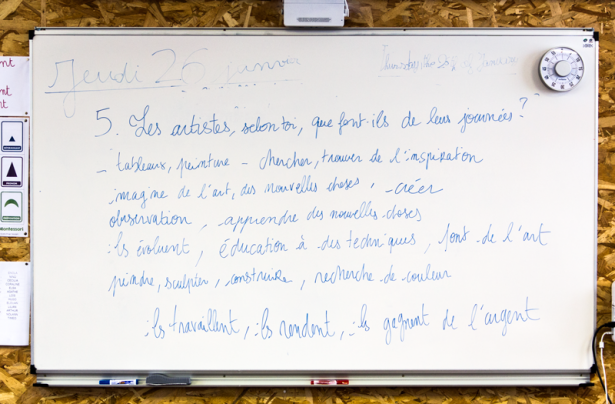 Jeudi 26 janvier
5. Les artistes, selon toi, que font-ils de leurs journées ?
- tableaux, peinture - chercher, trouver de l'inspiration
imagine de l'art, des nouvelles choses, - créer
observation, - apprendre des nouvelles choses
ils évoluent, éducation à des techniques, font de l'art
peindre, sculpter, construire, recherche de couleur
ils travaillent, ils vendent, ils gagnent de l'argent